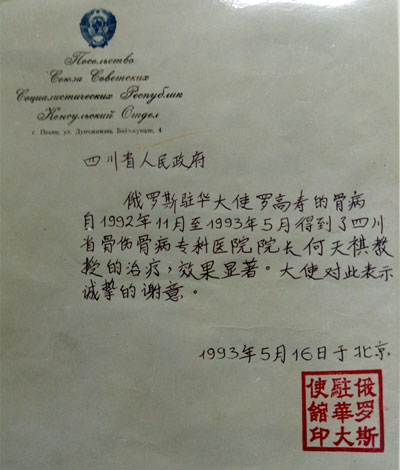 Посольство
Союза Советских
Социалистических Республик
Консульский Отдел
г. Пекин, ул. Дунчжимэнь, Бейчжунцзе, 4
四川省人民政府
俄罗斯驻华大使罗高寿的骨病
自1992年11月至1993年5月得到了四川
省骨伤骨病专科医院院长何天祺教
授的治疗，效果显著。大使对此表示
诚挚的谢意。
1993年5月16日于北京
俄罗斯
駐華大
使館印